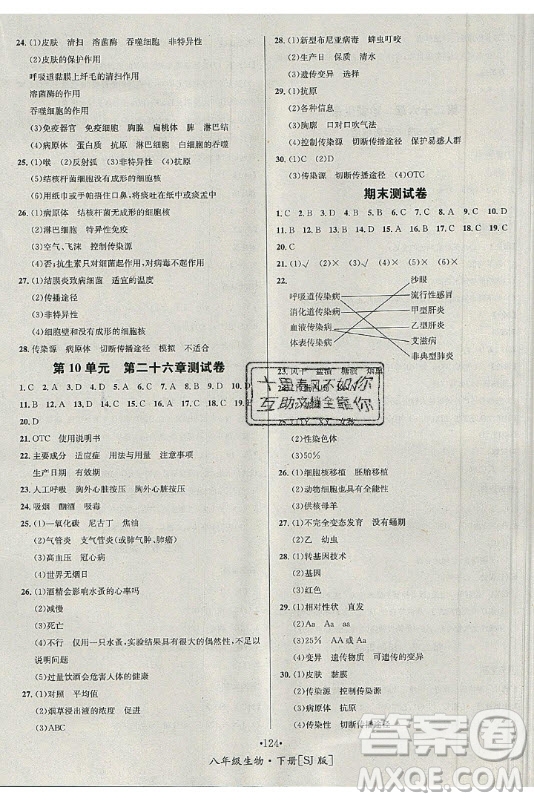 24. (1)皮肤 清扫 溶菌酶 吞噬细胞 非特异性
(2)皮肤的保护作用
呼吸道黏膜上纤毛的清扫作用
溶菌酶的作用
吞噬细胞的作用
(3)免疫器官 免疫细胞 胸腺 扁桃体 脾 淋巴结
(4)病原体 蛋白质 抗体 抗原 特异性
25. (1)喉 (2)反射弧 (3)非特异性 (4)抗原
(5)结核杆菌无成形的细胞核
(6)用纸巾或手帕捂住口鼻,将痰吐在纸巾或痰盂中
26. (1)病原体 结核杆菌无成形的细胞核
(2)淋巴细胞 抗体
(3)空气、飞沫 控制传染源
(4)否:抗生素只对细菌起作用,对病毒不起作用。
27. (1)结膜炎致病细菌 适宜的温度
(2)传播途径
(3)非特异性
(4)细胞壁和没有成形的细胞核
28. 传染源 病原体 切断传播途径 模拟 不适合
第10单元 第二十六章测试卷
20. D
21. OTC 使用说明书
22. 主要成分 适应症 用法与用量 注意事项
生产日期 有效期
23. 人工呼吸 胸外心脏按压 胸外心脏按压
24. 吸烟 酗酒 吸毒
25. (1)一氧化碳 尼古丁 焦油
(2)气管炎 支气管炎(或肺炎、肺癌)
(3)高血压 冠心病
(4)世界无烟日
26. (1)酒精会影响水蚤的心率吗?
(2)减慢
(3)死亡
(4)不行 仅用一只水蚤,实验结果具有偶然性,不足以
说明问题
(5)过量饮酒会危害人体健康或酒后驾车会危害交通
安全等
27. (1)对照 平均值
(2)烟草浸出液的浓度
(3)ABC
28. (1)新型布尼亚病毒 蜱虫叮咬
(2)生产日 保质日期
(3)遗传变异
29. (1)抗原
(2)各种信息
(3)胸廓 口对口吹气法
(4)控制传染源 切断传播途径 保护易感人群
30. (1)C
(3)传染源 切断传播途径 (4)OTC
期末测试卷
1. C 2. B 3. D 4. C 5. B 6. C 7. A 8. C 9. C 10. D
20. C
22.
呼吸道传染病
消化道传染病
血液传染病
体表传染病
沙眼
流行性感冒
甲型肝炎
乙型肝炎
艾滋病
非典型肺炎
十里春风不如你
互助文档全靠你
(2)性染色体
(3)50%
26. (1)细胞核移植 胚胎移植
(2)动物细胞核也具有全能性
(3)B
27. (1)不完全变态发育 没有蛹期
(2)乙 幼虫
28. (1)转基因技术
(2)基因
(3)变异
29. (1)相对性状 直发
(2)aa AA或Aa
(3)25% AA或Aa
(4)变异 遗传物质 可遗传的变异
30. (1)皮肤 黏膜
(2)病原体 传染源
控制传染源
(3)抗体 特异性
(4)传染性 切断传播途径 切断传播途径
·124·
八年级生物·下册[SJ版]
答案圈
MXQE.COM